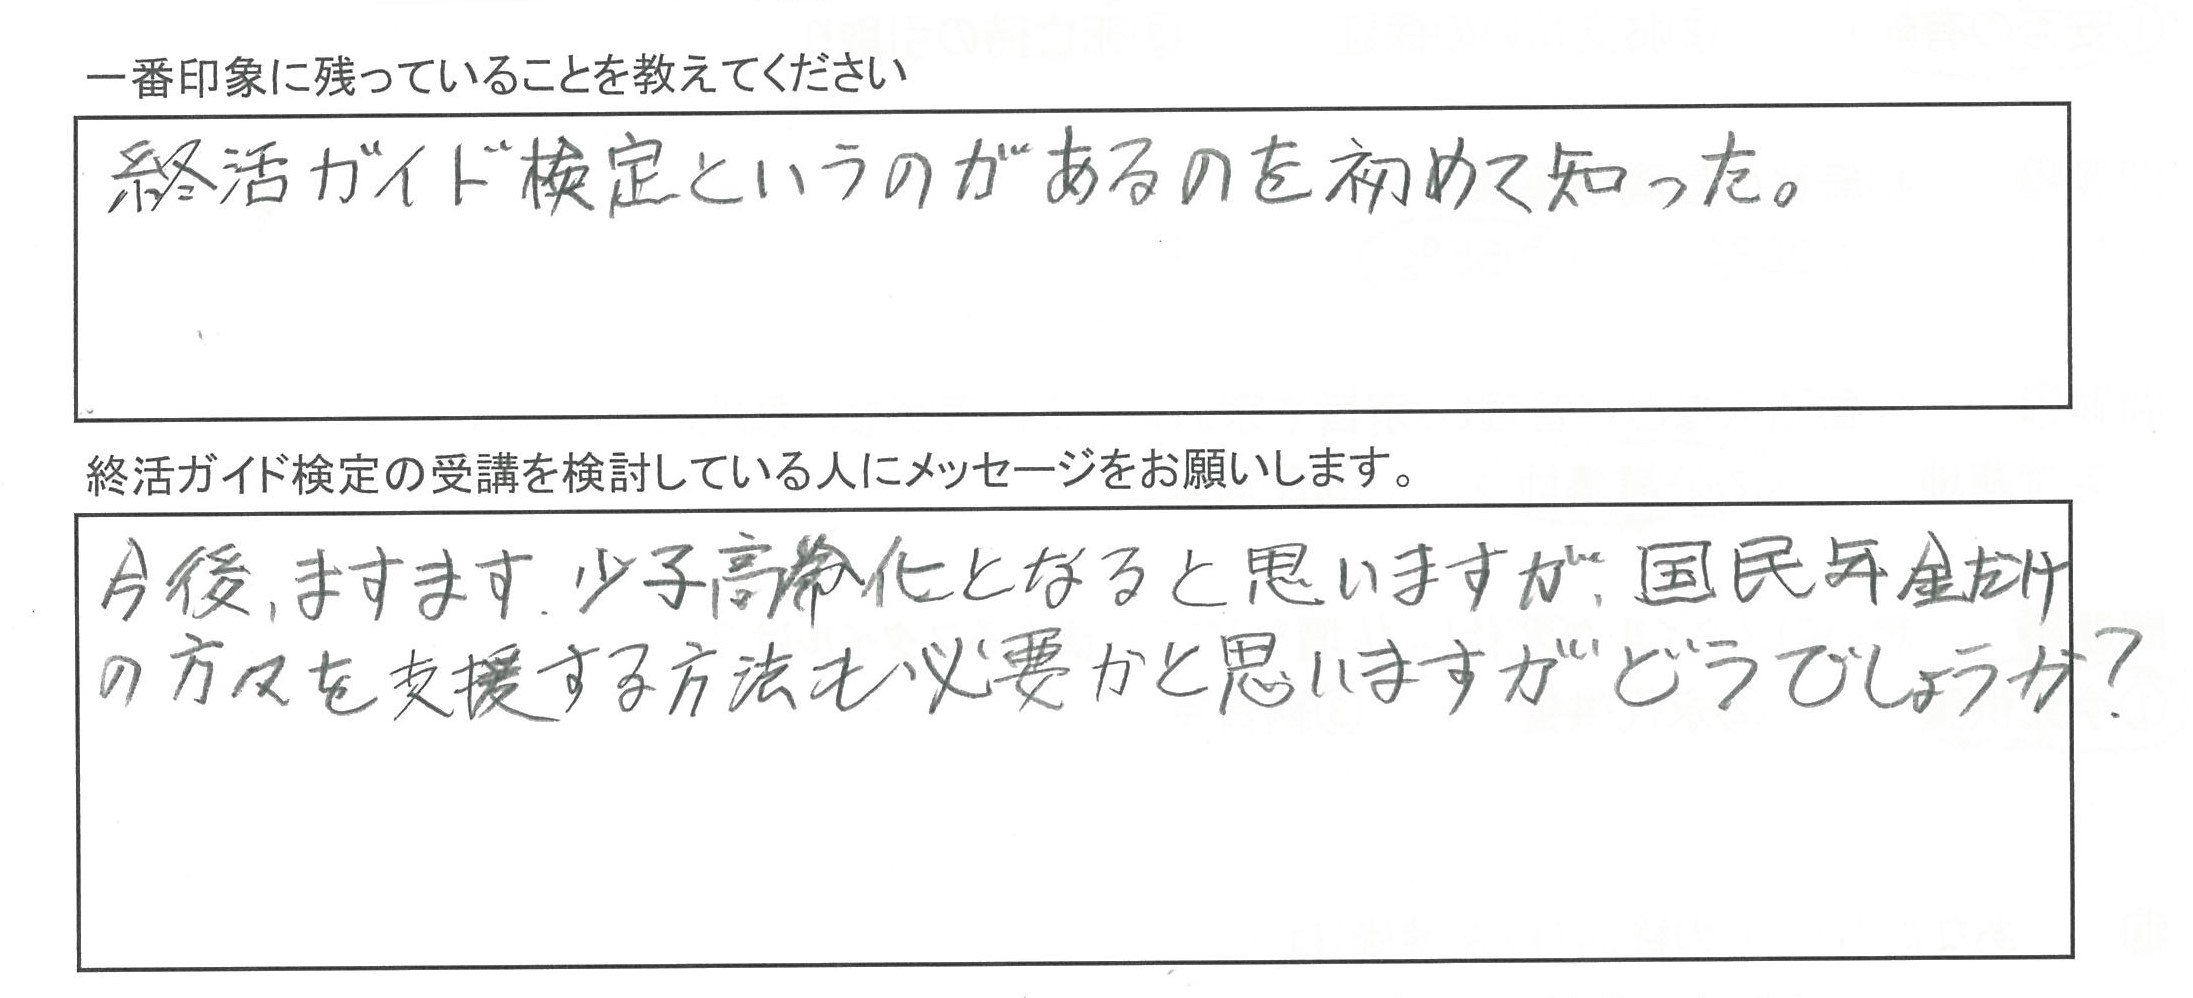 一番印象に残っていることを教えてください
終活ガイド検定というのがあるのを初めて知った。
終活ガイド検定の受講を検討している人にメッセージをお願いします。
今後、ますます、少子高齢化となると思いますが、国民年金だけ
の方々を支援する方法も必要かと思いますがどうでしょうか?